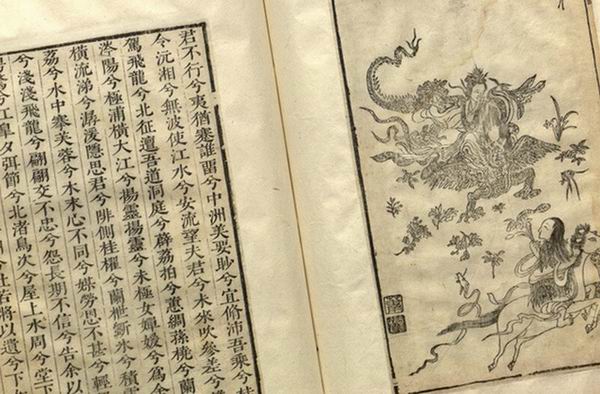 君不行兮夷猶蹇誰留兮中洲美要眇兮宜修沛吾乘兮桂
令沅湘兮無波使江水兮安流望夫君兮未來吹參差兮
駕飛龍兮北征邅吾道洞庭兮薜荔拍兮蕙綢蓀橈兮蘭
涔陽兮極浦橫大江兮揚靈揚靈兮未極女嬋媛兮爲余
橫流涕兮潺湲隱思君兮陫側桂櫂兮蘭枻斲氷兮積
荔兮水中搴芙蓉兮木末心不同兮媒勞恩不甚兮輕
兮淺淺飛龍兮翩翩交不忠兮怨長期不信兮告余以
兮江皋夕弭節兮北渚鳥次兮屋上水周兮堂下
杜若將以遺兮下